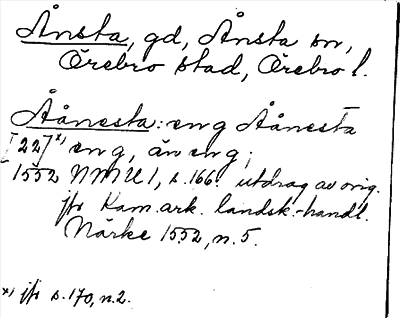 Ånsta, gd, Ånsta sn,
Örebro stad, Örebro l.
Åånesta: en g Åånesta
[22]x) en g, än en g;
1552 NMU 1, s. 166. utdrag av orig.
jfr Kam. ark. landsk.-handl.
Närke 1552, n. 5.
x) jfr s. 170, n. 2.